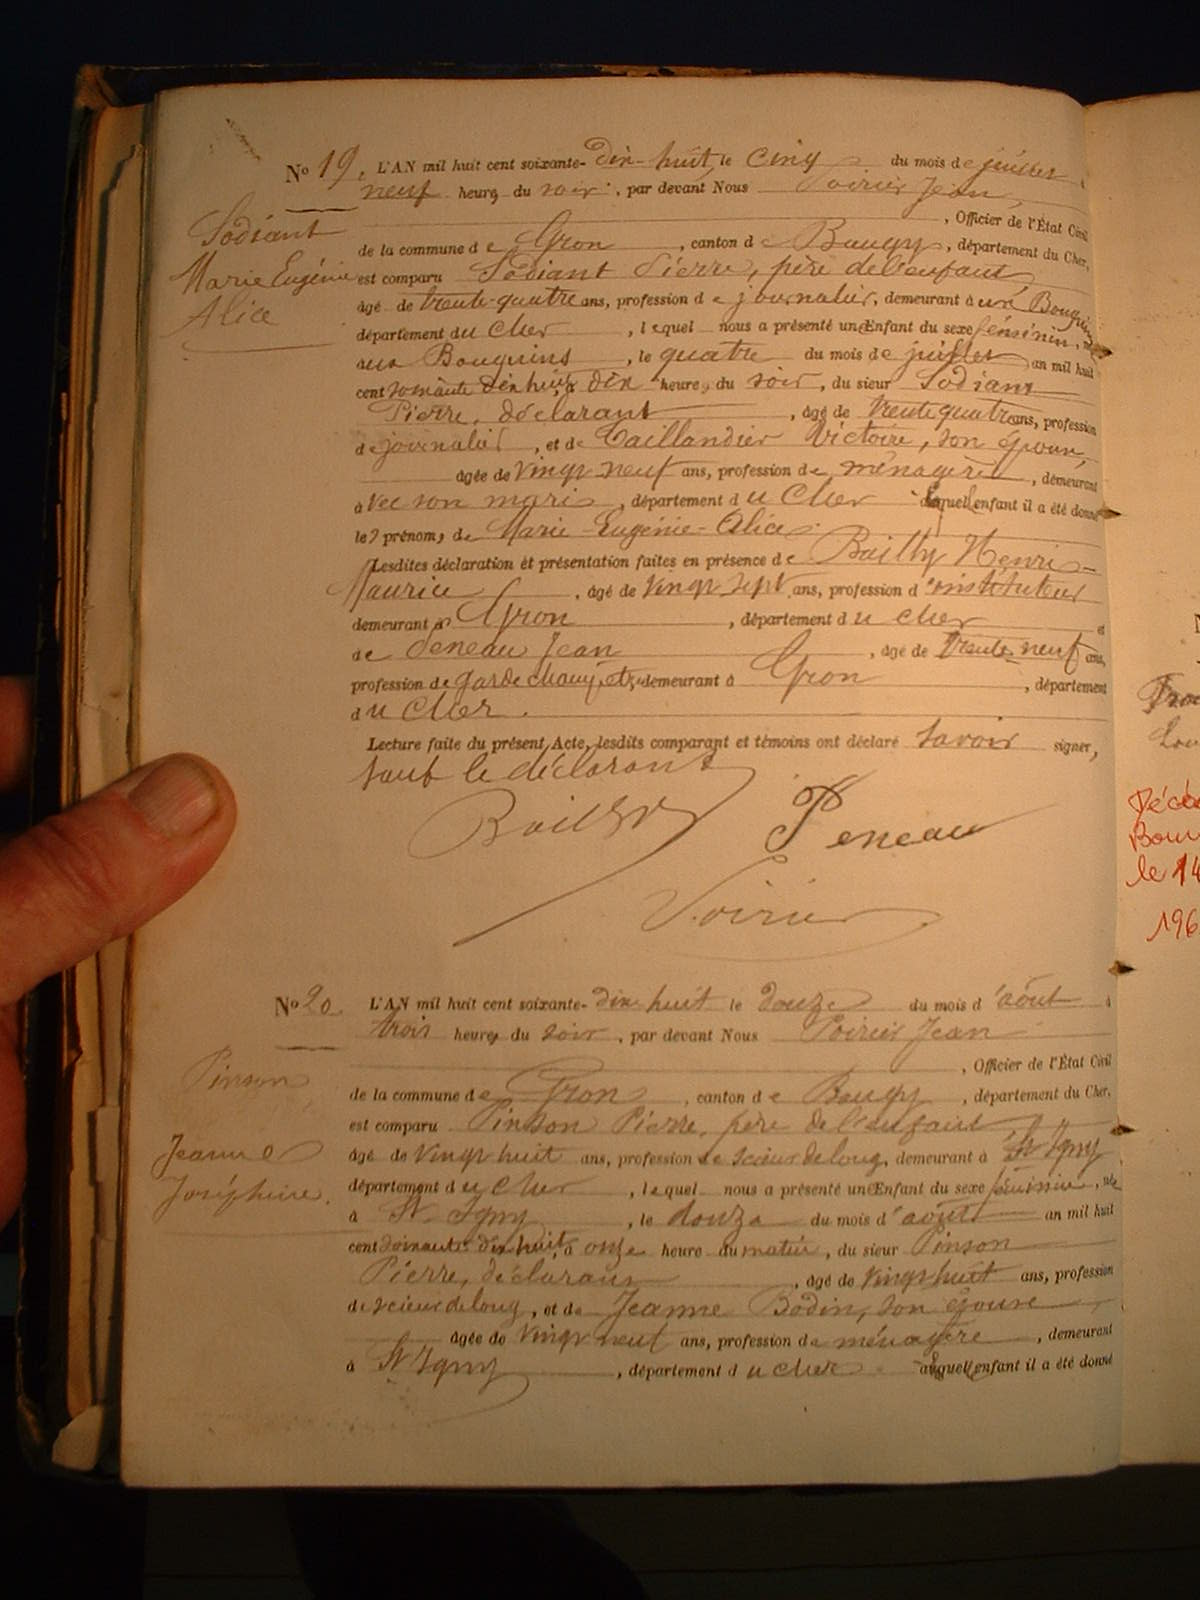 No 19. L'AN mil huit cent soixante-dix-huit, le cinq du mois de juillet à
neuf heures du soir, par devant Nous Poirier Jean
, Officier de l'État Civil
Sodiant
Marie Eugénie
Alice
de la commune de Gron, canton de Baugy, département du Cher,
est comparu Sodiant Pierre, père de l'enfant
âgé de trente-quatre ans, profession de journalier, demeurant à
département du Cher, lequel nous a présenté un Enfant du sexe féminin, née
aux Bouquins, le quatre du mois de juillet an mil huit
cent soixante dix huit, à dix heures du soir, du sieur Sodiant
Pierre, déclarant, âgé de trente quatre ans, profession
de journalier, et de Taillandier Victoire, son épouse,
âgée de vingt neuf ans, profession de ménagère, demeurant
avec son mari, département du Cher auquel enfant il a été donné
les prénoms de Marie-Eugénie-Alice.
Lesdites déclaration et présentation faites en présence de Bailly Henri
Maurice, âgé de vingt sept ans, profession d'instituteur
demeurant à Gron, département du Cher et
de Peneau Jean, âgé de trente neuf ans,
profession de garde champêtre, demeurant à Gron, département
du Cher.
Lecture faite du présent Acte, lesdits comparant et témoins ont déclaré savoir signer,
sauf le déclarant
Bailly Peneau
Poirier
No 20. L'AN mil huit cent soixante-dix huit le douze du mois d'août à
trois heures du soir, par devant Nous Poirier Jean
, Officier de l'État Civil
Pinson
Jeanne
Joséphine.
de la commune de Gron, canton de Baugy, département du Cher,
est comparu Pinson Pierre, père de l'enfant
âgé de vingt huit ans, profession de scieur de long, demeurant à St Igny
département du Cher, lequel nous a présenté un Enfant du sexe féminin, née
à St Igny, le douze du mois d'août an mil huit
cent soixante dix huit, à onze heure du matin, du sieur Pinson
Pierre, déclarant, âgé de vingt huit ans, profession
de scieur de long, et de Jeanne Bodin, son épouse,
âgée de vingt neuf ans, profession de ménagère, demeurant
à St Igny, département du Cher auquel enfant il a été donné
le 14
196